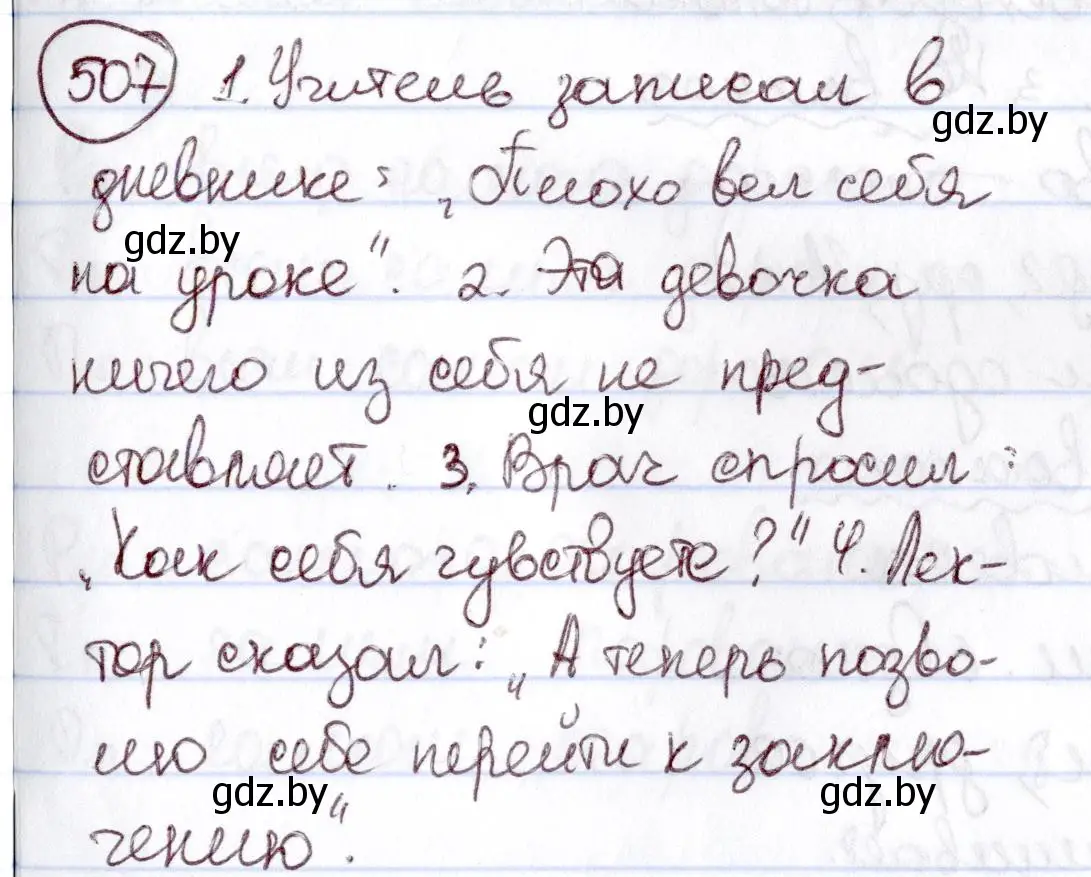 507 1. Учитель записал в
gdz.by
дневнике: „Плохо вел себя
gdz.by
на уроке". 2. Эта девочка
ничего из себя не пред-
gdz.by
ставляет. 3. Врач спросил:
„Как себя чувствуете?" 4. Лек-
тор сказал: „А теперь позво-
лю себе перейти к заклю-
gdz.by gdz.by
чению".